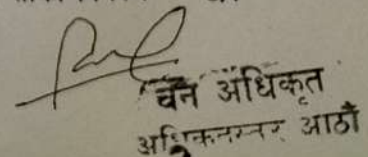 वन अधिकृत
अधिकृतस्तर आठौं